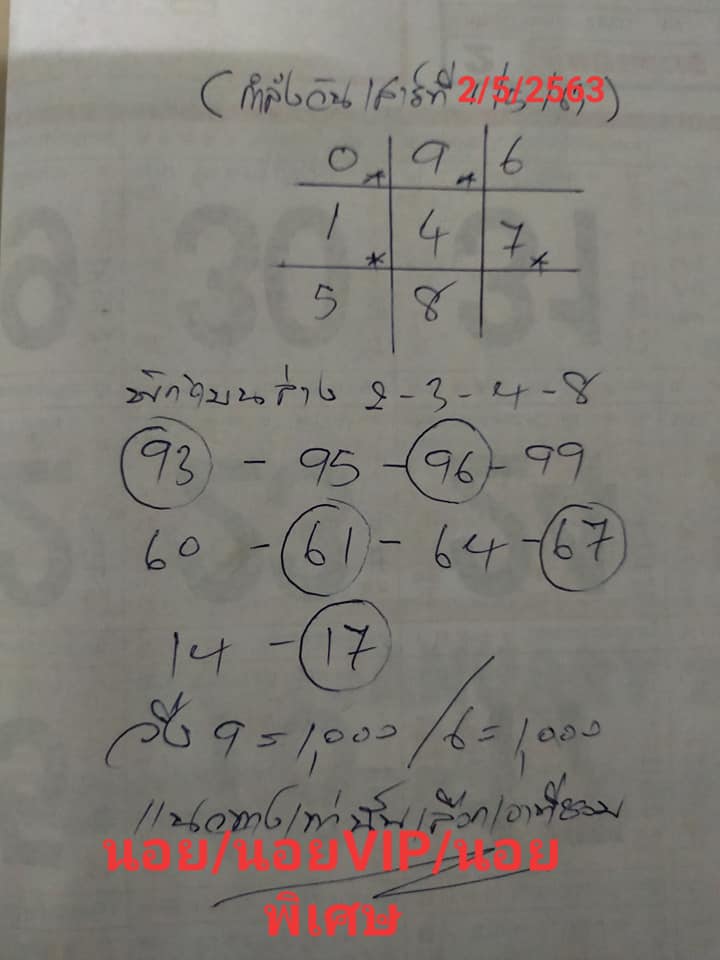 (กำลังวันเสาร์ที่ 2/5/2563)
0* 9* 6
1* 4 7*
5 8
บนล่าง 2-3-4-8
93 - 95 - 96 - 99
60 - 61 - 64 - 67
14 - 17
วิ่ง 9 = 1,000 / 6 = 1,000
แนวทางเท่านั้นเลือกเอาที่ชอบ
นอย/นอยVIP/นอย
พิเศษ